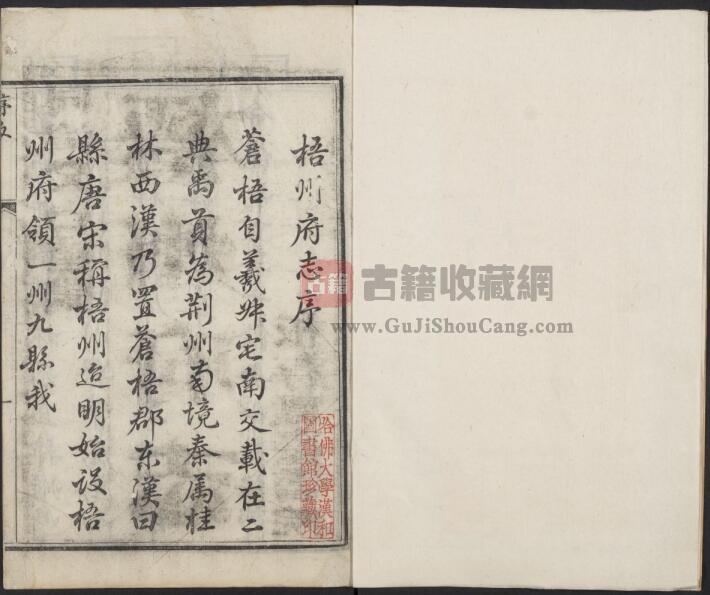 梧州府志序
蒼梧自羲叔宅南交載在二
典禹貢為荆州南境秦属桂
林西漢乃置蒼梧郡东漢曰
縣唐宋稱梧州迨明始设梧
州府領一州九縣我
哈佛大學漢和
圖書館珍藏印
古籍
古籍收藏網
www.GuJiShouCang.com